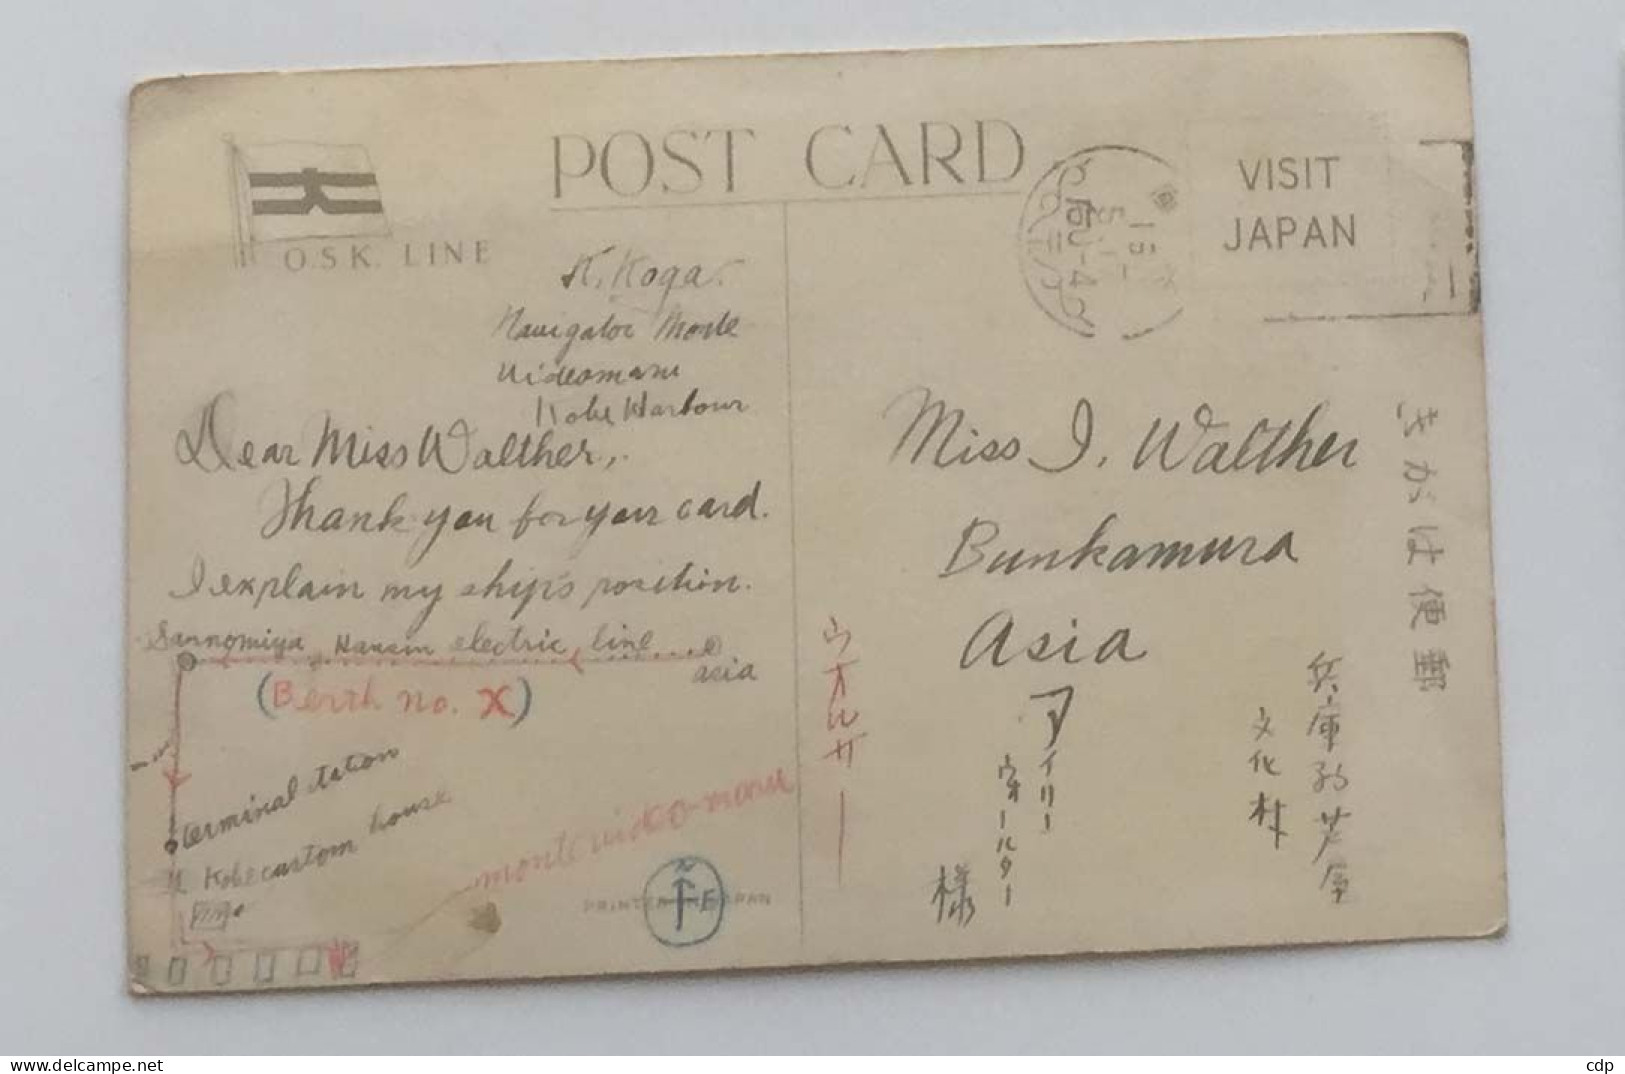 POST CARD
O.S.K. LINE
VISIT
JAPAN
K. Koga.
Navigator Monte
Videomaru
Kobe Harbour
Dear Miss Walther,
Thank you for your card.
I explain my ship's position.
Sannomiya Hansin electric line
asia
(Berth no. X)
terminal station
Kobe custom house
montevideo-maru
N
E
PRINTED IN JAPAN
Miss I. Walther
Bunkamura
Asia
きがは便郵
兵庫縣芦屋
文化村
アイリー
ウォールター
様
ウオルサー
cdp